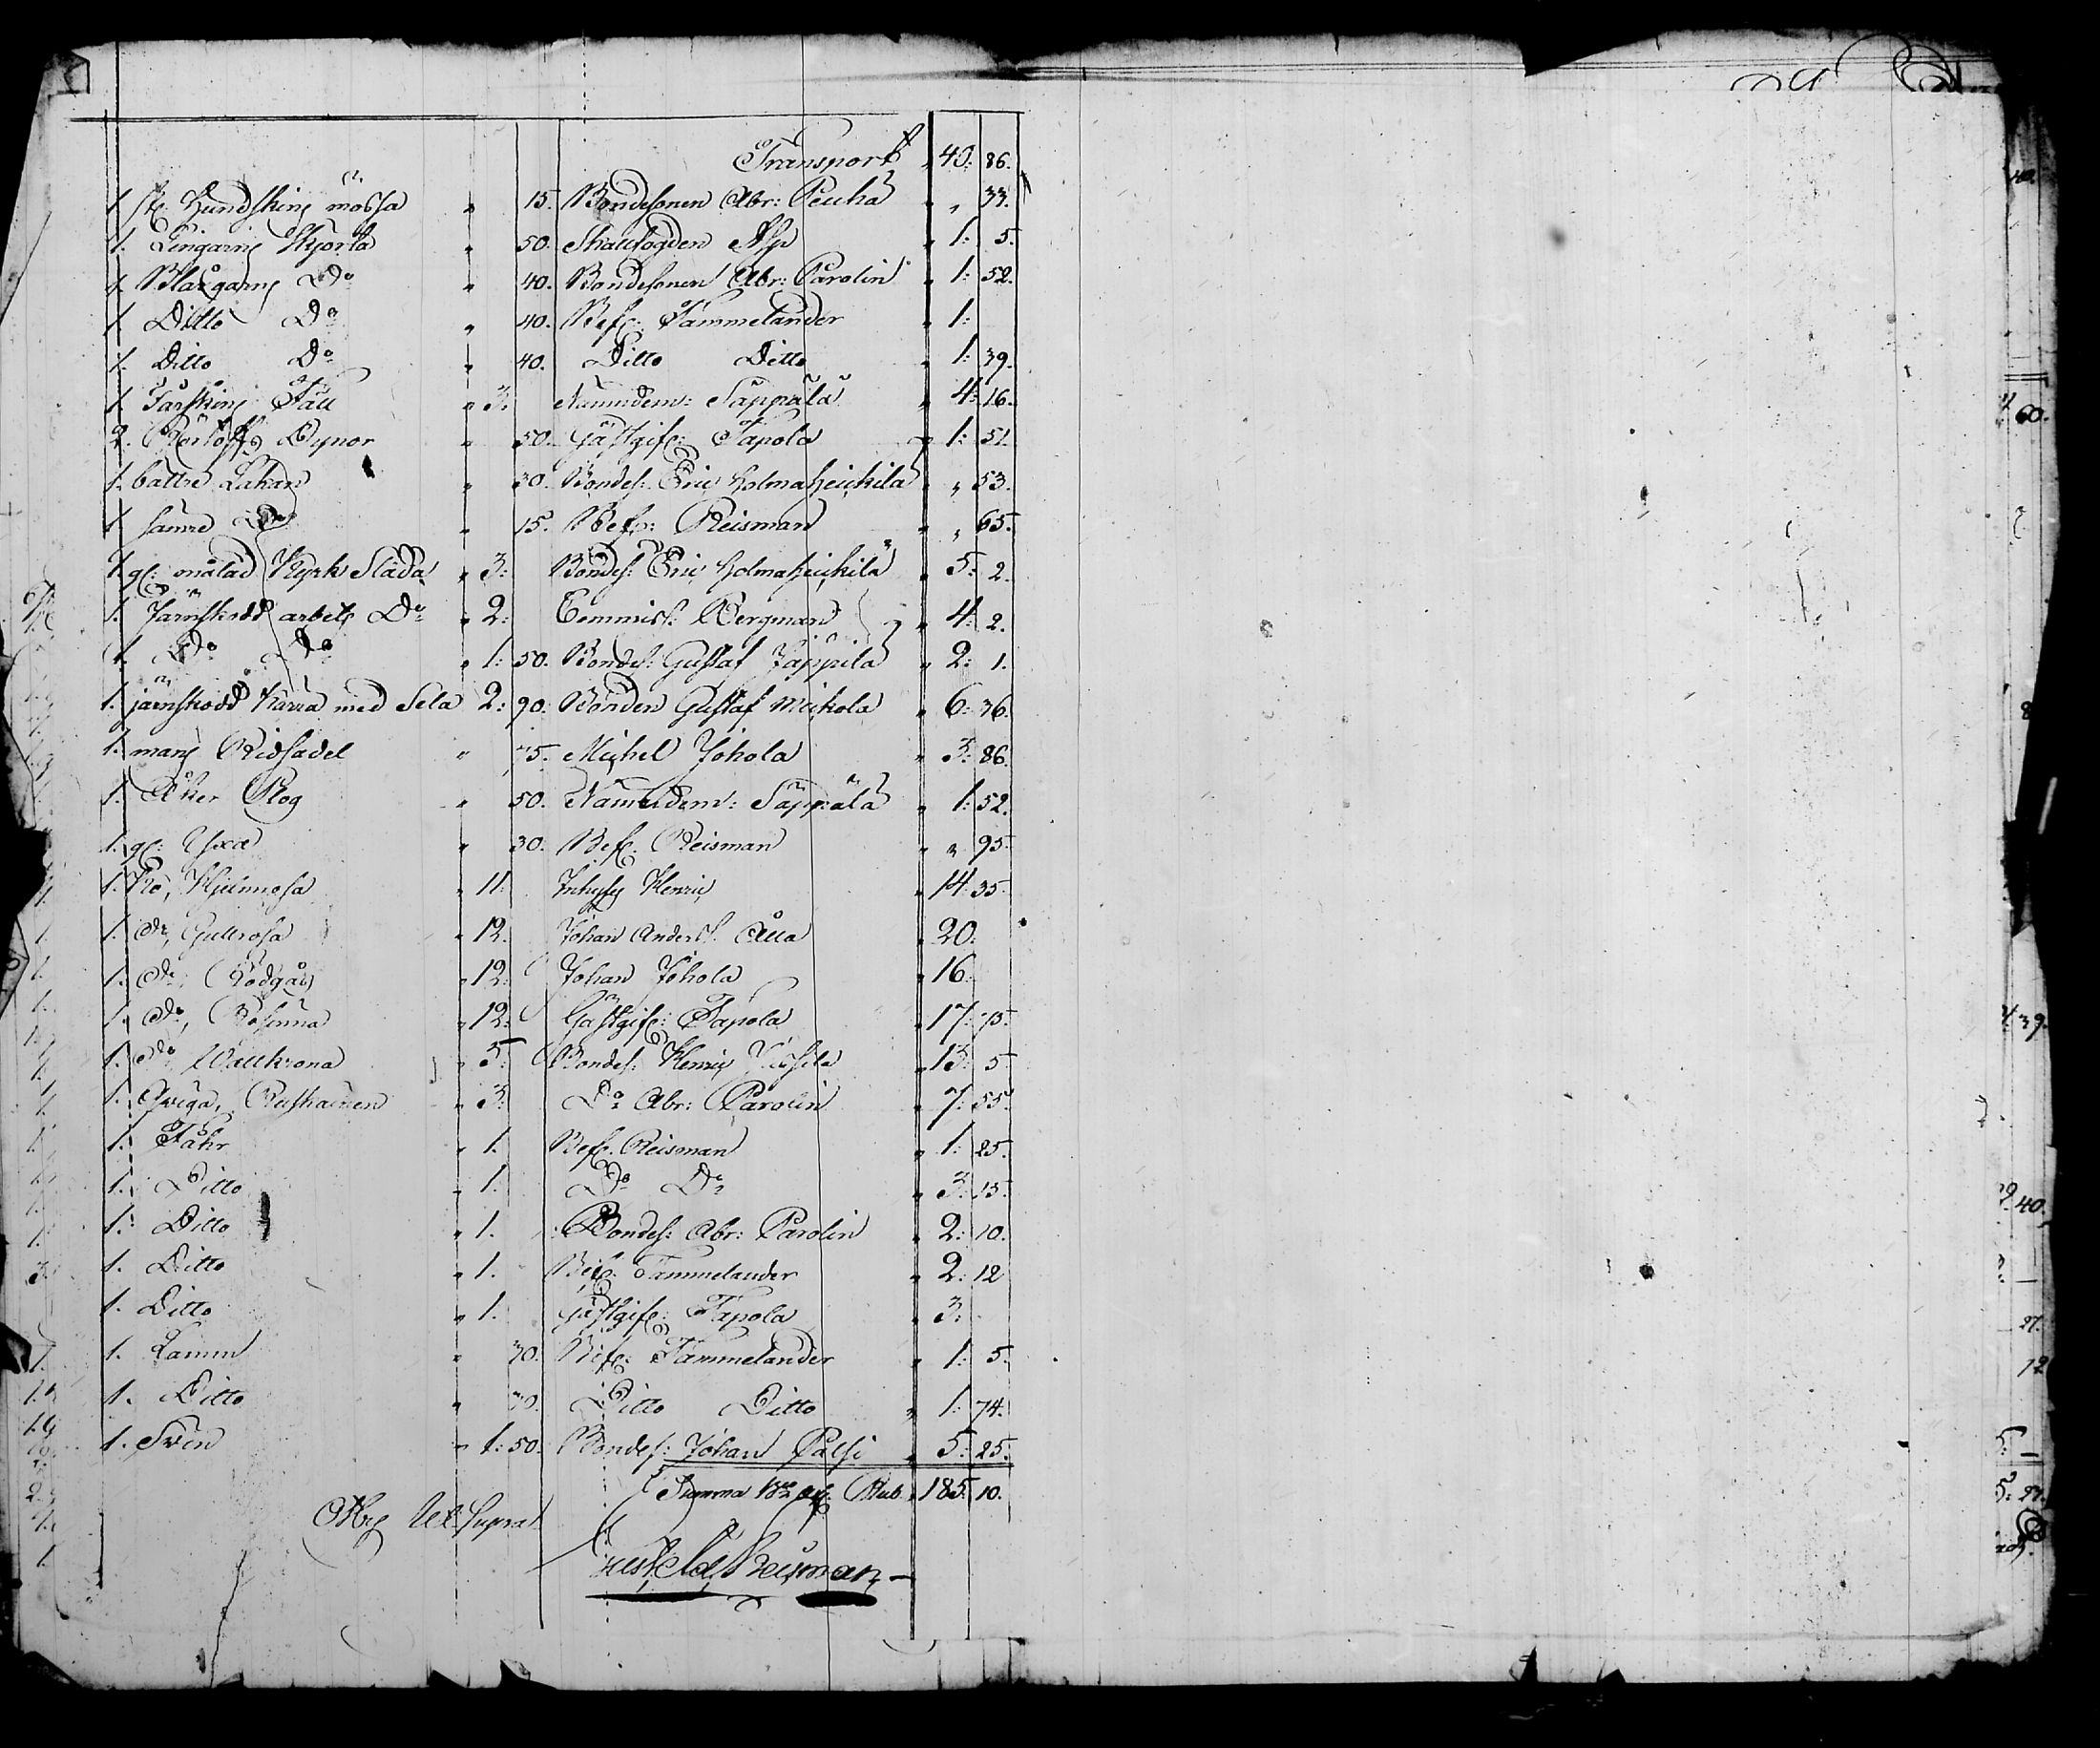 Transport " 40: 86.
1 st: Hundskins mössa " 15. Bondesonen Abr: Peuha " " 33.
1. Lingarns Skjorta " 50. Skallfogden Asp " 1: 5.
1. Blårgarns Do " 40. Bondesonen Abr: Parolin " 1: 52.
1. Ditto Do " 40. Bef: Tammelander " 1:
1. Ditto Do " 40. Ditto Ditto " 1: 39.
1. Fårskins Fäll " 3: Nämndem: Säppälä " 4: 16.
2. Dynor " 50. Gästgif: Tapola " 1: 51.
1. battre Lakan " 30. Bondes: Eric Holmaheickilä " " 53.
1. sämre Do " 15. Bef: Reisman " " 65.
1. gl: målad Kyrk Släda " 3: Bondes: Eric Holmaheickilä " 5: 2.
1. Järnskodd arbets Do " 2: Commiss: Bergman " 4: 2.
1. Do Do " 1: 50. Bondes: Gustaf Jäppilä " 2: 1.
1. järnskodd Kärra med Sela 2: 90. Bonden Gustaf Mickola " 6: 36.
1. mans Ridsadel " 75. Michel Johola " 3: 86.
1. Åker Plog " 50. Nämndem: Säppälä " 1: 52.
1. gl: Yxa " 30. Bef: Reisman " " 95.
1. Ko, Hjelmrosa " 11: Inhyses Henric " 14: 35.
1. do, Gullrosa " 12. Johan Anders: Alla " 20:
1. do, Rödgås " 12: Johan Johola " 16.
1. do, Rosinna " 12: Gästgif: Tapola " 17: 75.
1. do, Wallkrona " 5: Bondes: Henric " 13: 5.
1. Qviga, " 3: Do Abr: Parolin " 7: 55.
1. Fåhr " 1. Bef: Reisman " 1: 25.
1. Ditto " 1. Do Do " 3: 15.
1. Ditto " 1. Bondes: Abr: Parolin " 2: 10.
1. Ditto " 1. Bef: Tammelander " 2: 12
1. Ditto " 1. Gästgif: Tapola " 3:
1. Lamm " 30. Bef: Tammelander " 1: 5.
1. Ditto " 30. Ditto Ditto " 1: 74.
1. Svin " 1: 50. Bondes: Johan Palsi " 5: 25.
Summa Rub. 185. 10.
Ut Supra
Reisman